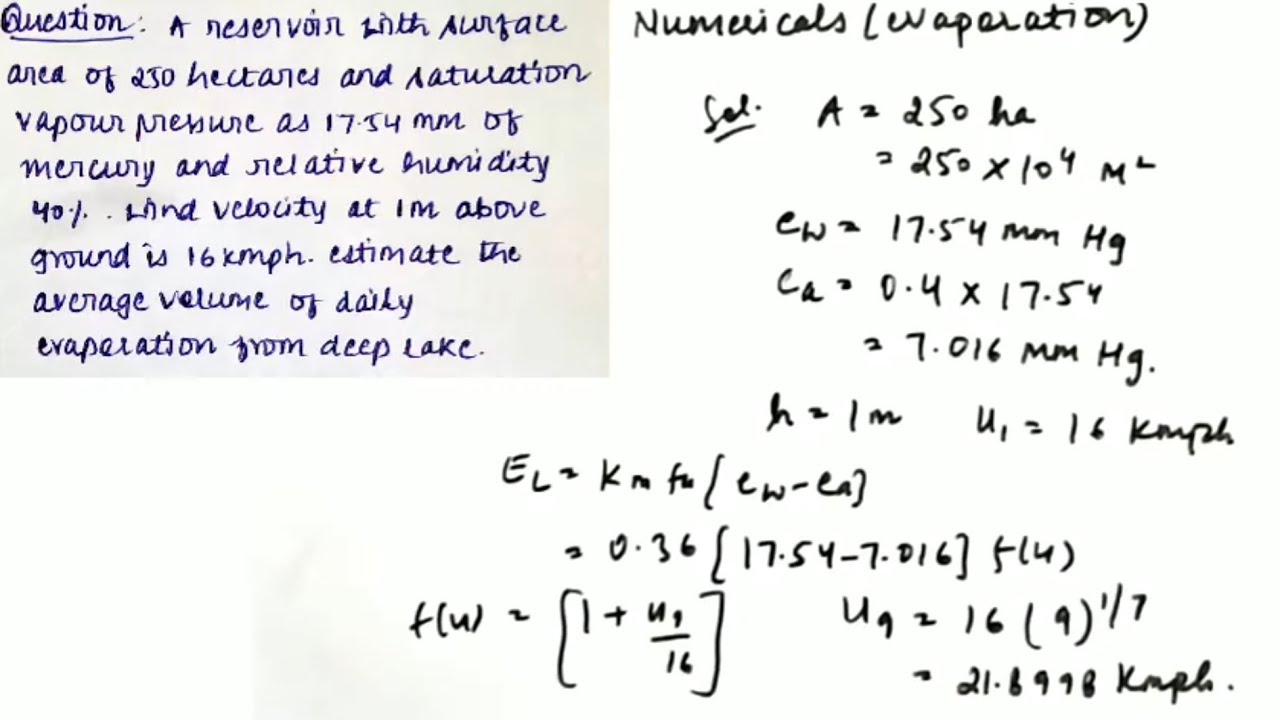 Question: A reservoir with surface
area of 250 hectares and saturation
vapour pressure as 17.54 mm of
mercury and relative humidity
40%. Wind velocity at 1m above
ground is 16 kmph. estimate the
average volume of daily
evaporation from deep lake.
Numericals (evaporation)
Sol. A = 250 ha
= 250 × 10⁴ M²
ew = 17.54 mm Hg
ea = 0.4 × 17.54
= 7.016 mm Hg.
h = 1m u₁ = 16 Kmph
EL = Km fu [ew-ea]
= 0.36 [17.54-7.016] f(u)
f(u) = [1 + u₉/16]
u₉ = 16 (9)^1/7
= 21.8998 Kmph.